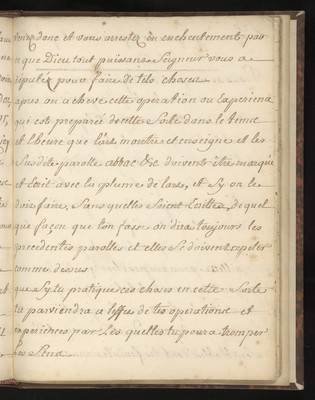 tenez donc et vous arrestez en enchentement par
a que Dieu tout puissans Seigneur vous a
deputez pour faire de tels choses
apres on acheve cette operation ou Experience
qui est preparée de cette Sorte dans le temse
et l'heure que l'art montre et enseigne et les
Susdite parolle abbac &c doivent être marqué
et Ecrit avec la plume de lars, et Sy on le
doit faire, Sans quelles Soient Ecittes, de quel
que façon que ton fasse on dira toujours les
precedentes parolles et elles Se doivent repeter
comme dessus
que Sy tu pratique ces choses en cette Sorte
tu parviendra a l'effec de tes operations et
experiences par Les quelles tu poura tromper
Les Sens